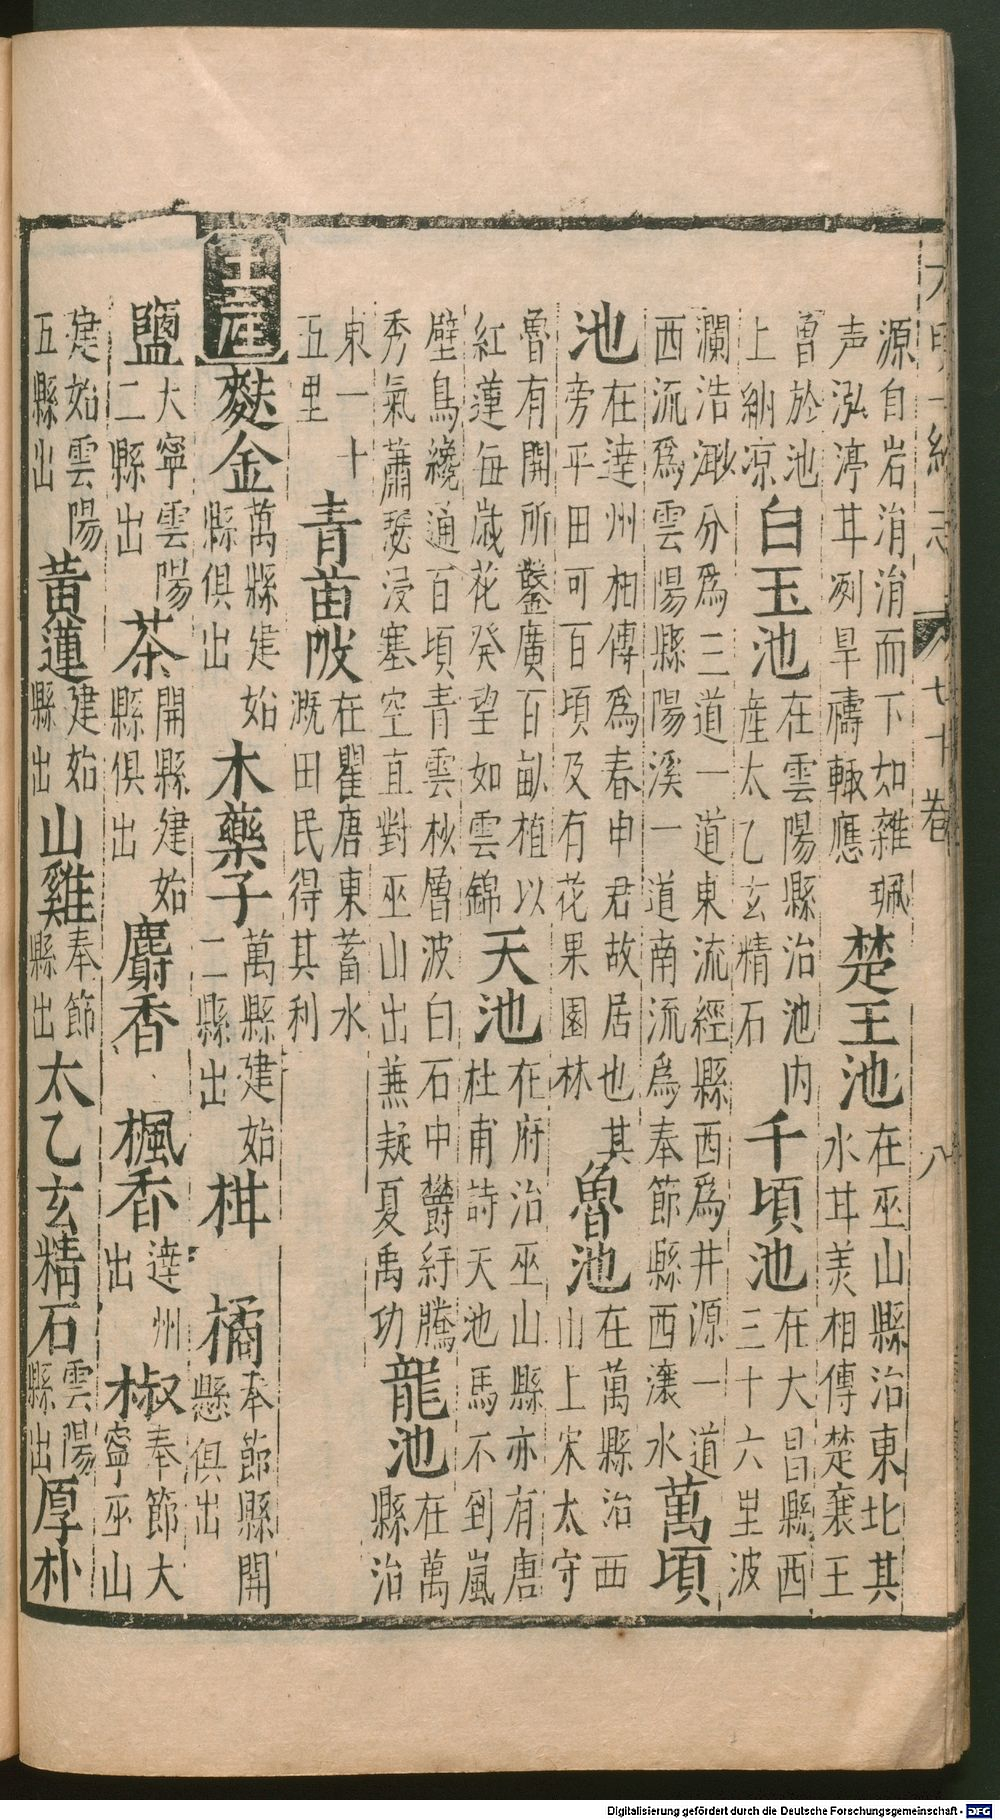 大明一統志 卷七十 八
源自岩涓涓而下如雜珮
声泓渟甘冽旱禱輙應
楚王池
在巫山縣治東北其
水甘美相傳楚襄王
曾於池
上納凉
白玉池
在雲陽縣治池内
産太乙玄精石
千頃池
在大昌縣西
三十六里波
瀾浩渺分為三道一道東流經縣西為井源一道
西流為雲陽縣陽溪一道南流為奉節縣西瀼水
萬頃
池
在達州相傳為春申君故居也其
旁平田可百頃及有花果園林
魯池
在萬縣治西
山上宋太守
魯有開所鑿廣百畝植以
紅蓮每歲花癸望如雲錦
天池
在府治巫山縣亦有唐
杜甫詩天池馬不到嵐
壁鳥纔通百頃青雲杪層波白石中欝紆騰
秀氣蕭瑟浸寒空直對巫山出蕪疑夏禹功
龍池
在萬
縣治
東一十
五里
青苗陂
在瞿唐東蓄水
溉田民得其利
土産
麩金
萬縣建始
縣俱出
木藥子
萬縣建始
二縣出
柑
橘
奉節縣開
縣俱出
鹽
大寧雲陽
二縣出
茶
開縣建始
縣俱出
麝香
楓香
達州
出
椒
奉節大
寧巫山
建始雲陽
五縣出
黄蓮
建始
縣出
山雞
奉節
縣出
太乙玄精石
雲陽
縣出
厚朴
Digitalisierung gefördert durch die Deutsche Forschungsgemeinschaft - DFG